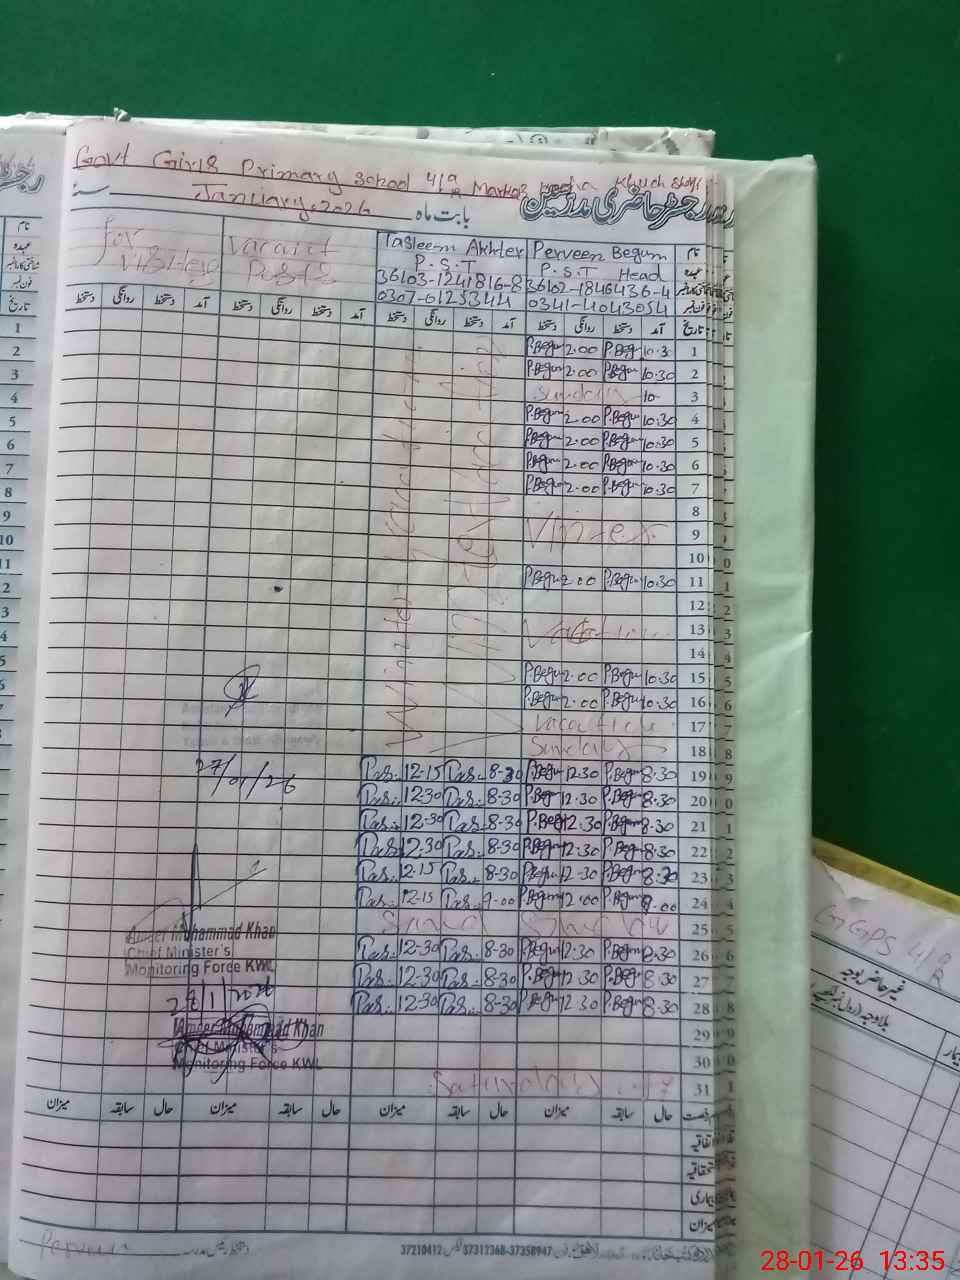 Govt Girls Primary School 4/9R Markaz Kacha Khuh
رجسٹر حاضری مدرسین
January 2026 بابت ماہ
for Vacant Tasleem Akhter Perveen Begum نام
Posts P.S.T P.S.T Head عہدہ
36103-1241816-8 36102-1846436-4
0307-6125344 0341-4043054 فون نمبر
دستخط روانگی دستخط آمد دستخط روانگی دستخط آمد دستخط روانگی دستخط آمد دستخط روانگی دستخط آمد تاریخ
P.Begum 2.00 P.Begum 10.30 1
P.Begum 2.00 P.Begum 10.30 2
Sunday 10- 3
P.Begum 2.00 P.Begum 10.30 4
P.Begum 2.00 P.Begum 10.30 5
P.Begum 2.00 P.Begum 10.30 6
P.Begum 2.00 P.Begum 10.30 7
8
Winter 9
10
P.Begum 2.00 P.Begum 10.30 11
12
Vacation 13
14
P.Begum 2.00 P.Begum 10.30 15
P.Begum 2.00 P.Begum 10.30 16
Vacation 17
Sunday 18
Winter Vacation
27/01/26
Tas. 12-15 Tas. 8-30 P.Begum 12.30 P.Begum 8.30 19
Tas. 12-30 Tas. 8-30 P.Begum 12.30 P.Begum 8.30 20
Tas. 12-30 Tas. 8-30 P.Begum 12.30 P.Begum 8.30 21
Tas. 12.30 Tas. 8-30 P.Begum 12-30 P.Begum 8.30 22
Tas. 12.15 Tas. 8-30 P.Begum 12-30 P.Begum 8.30 23
Tas. 12-15 Tas. 9-00 P.Begum 12.00 P.Begum 9.00 24
Sunday 25
Tas. 12-30 Tas. 8-30 P.Begum 12.30 P.Begum 8.30 26
Tas. 12-30 Tas. 8-30 P.Begum 12.30 P.Begum 8.30 27
Tas. 12-30 Tas. 8-30 P.Begum 12.30 P.Begum 8.30 28
29
30
Saturday 31
Ameer Muhammad Khan
Chief Minister's
Monitoring Force KWL
28/1/2026
Ameer Muhammad Khan
Chief Minister's
Monitoring Force KWL
میزان سابقہ حال میزان سابقہ حال میزان سابقہ حال میزان سابقہ حال
اتفاقیہ
بیماری
میزان
37210412 37312368-37358947
GGPS 4/9R
غیر حاضر بوجہ
بیمار
28-01-26 13:35